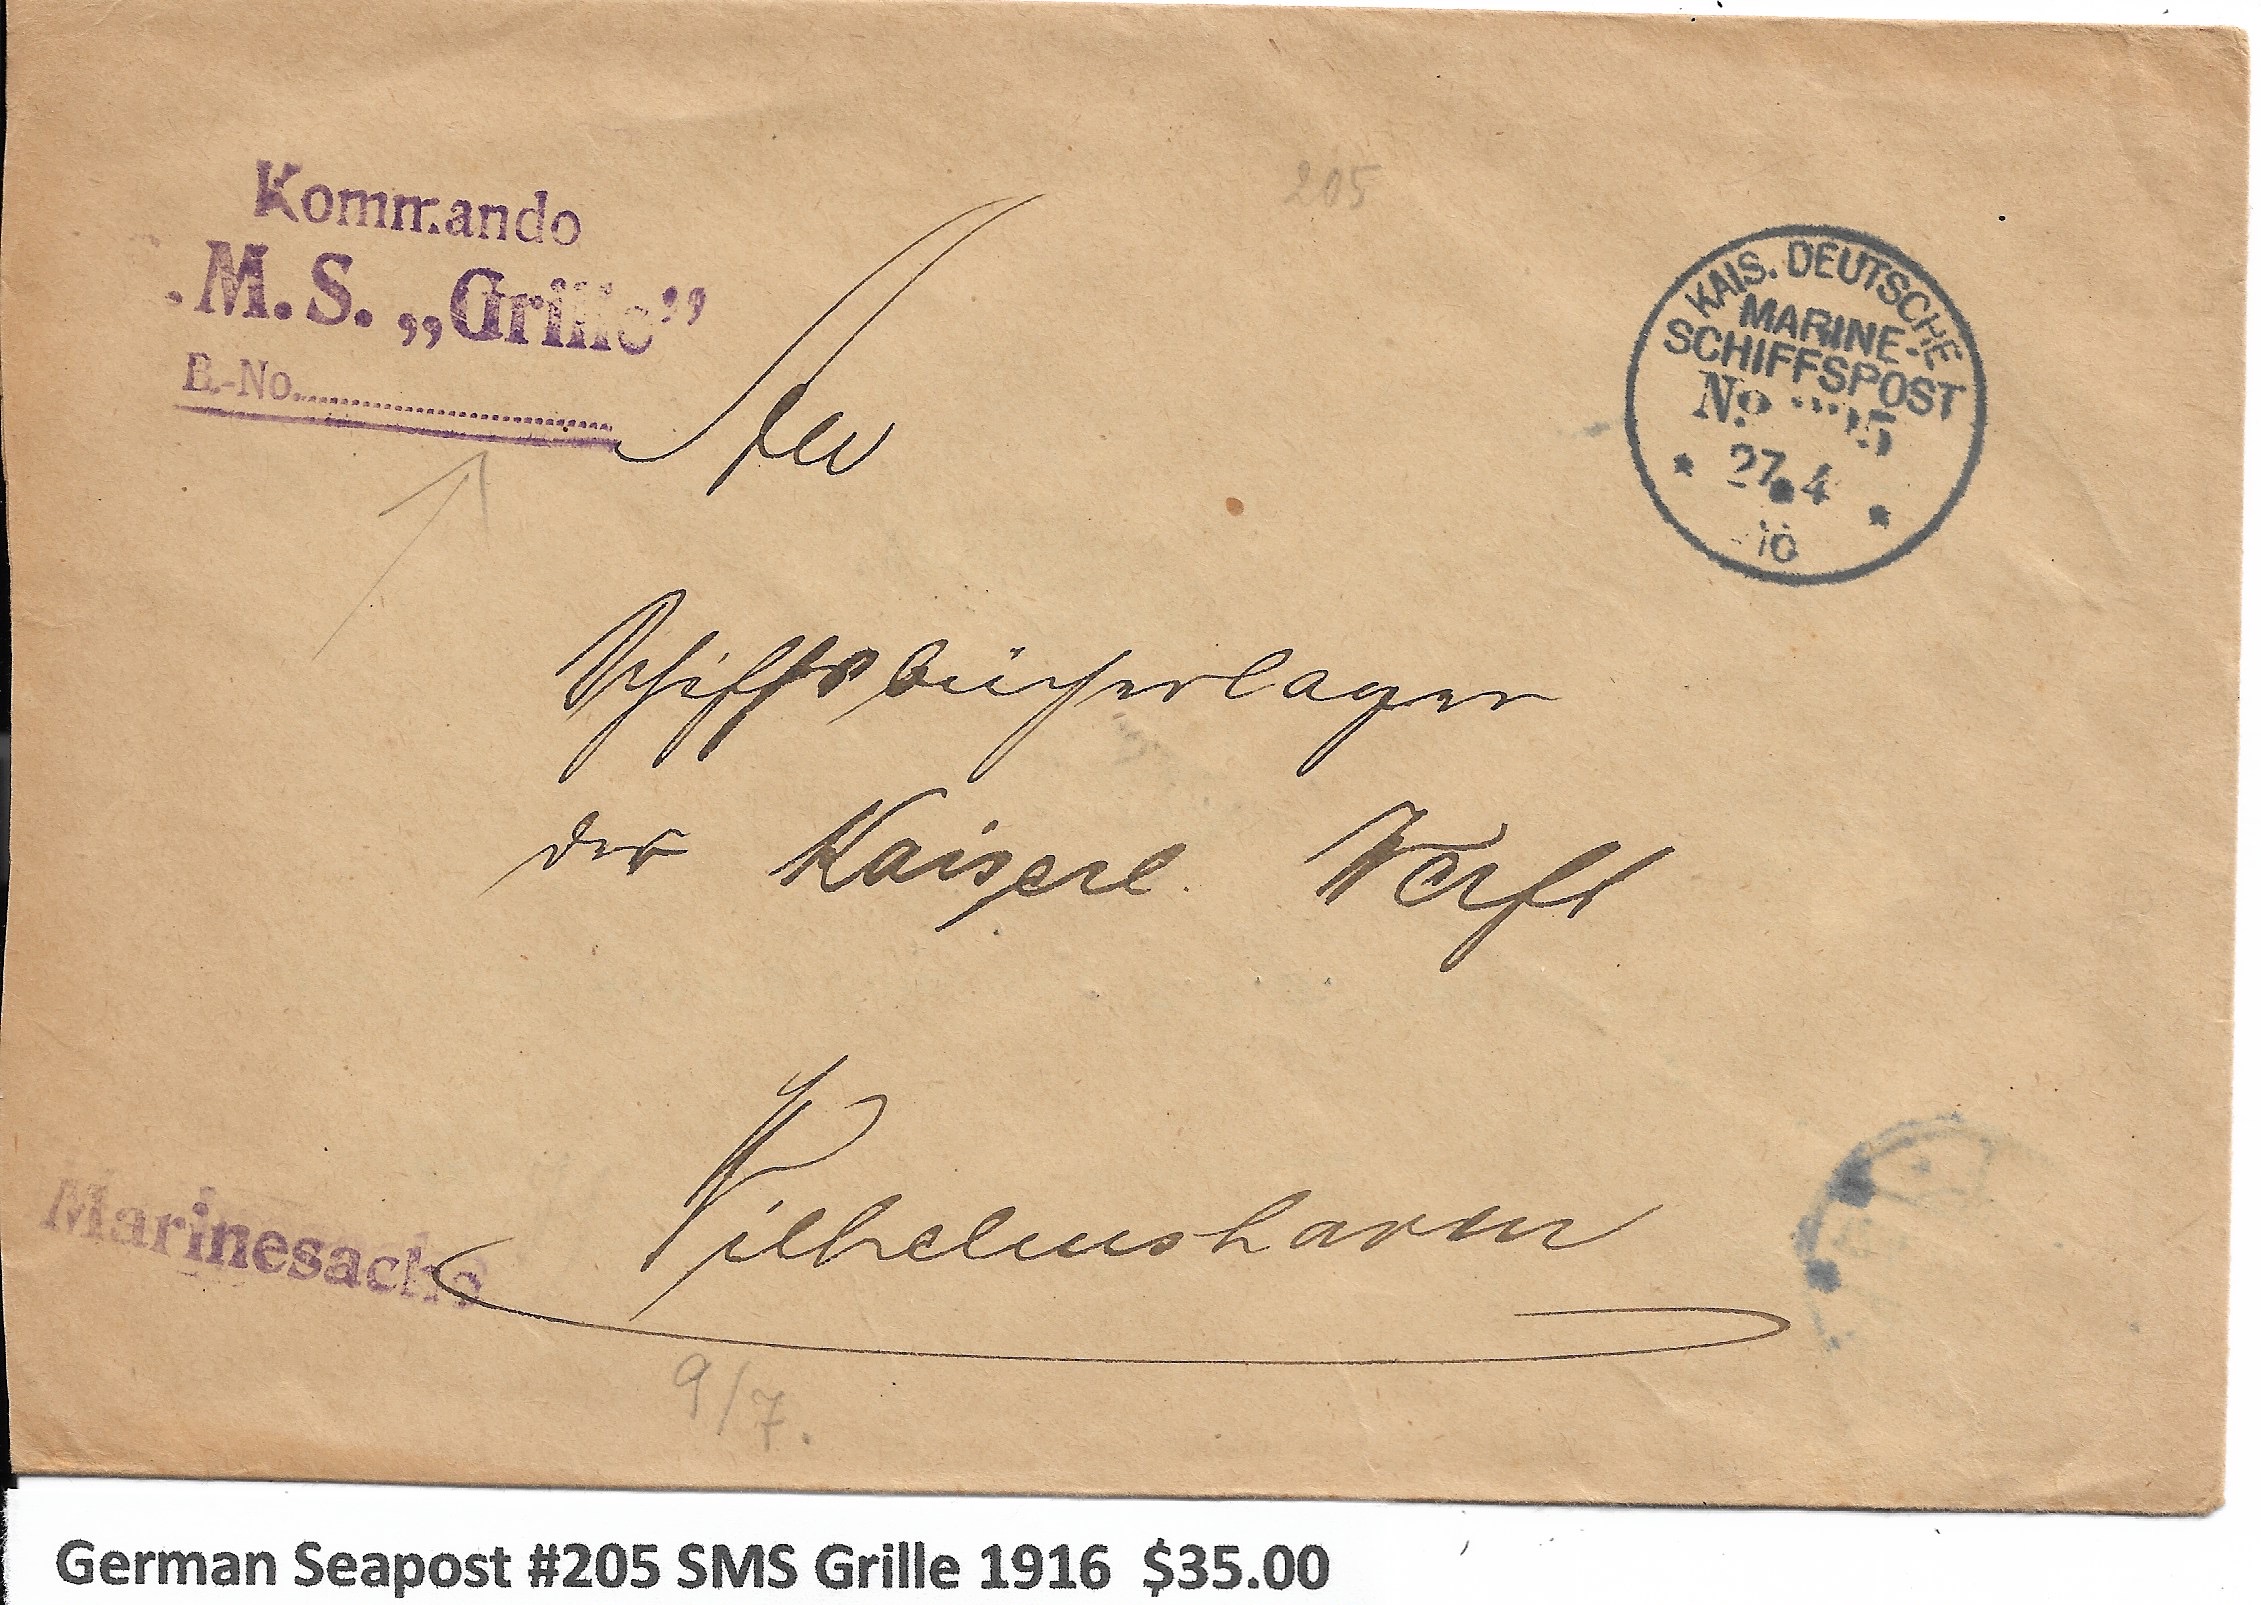 Kommando
.M.S. „Grille”
B.-No.
205
KAIS. DEUTSCHE
MARINE-
SCHIFFSPOST
No
27.4
16
An
Schiffsbücherlager
der Kaiserl. Werft
Wilhelmshaven
Marinesache
9/7.
German Seapost #205 SMS Grille 1916 $35.00